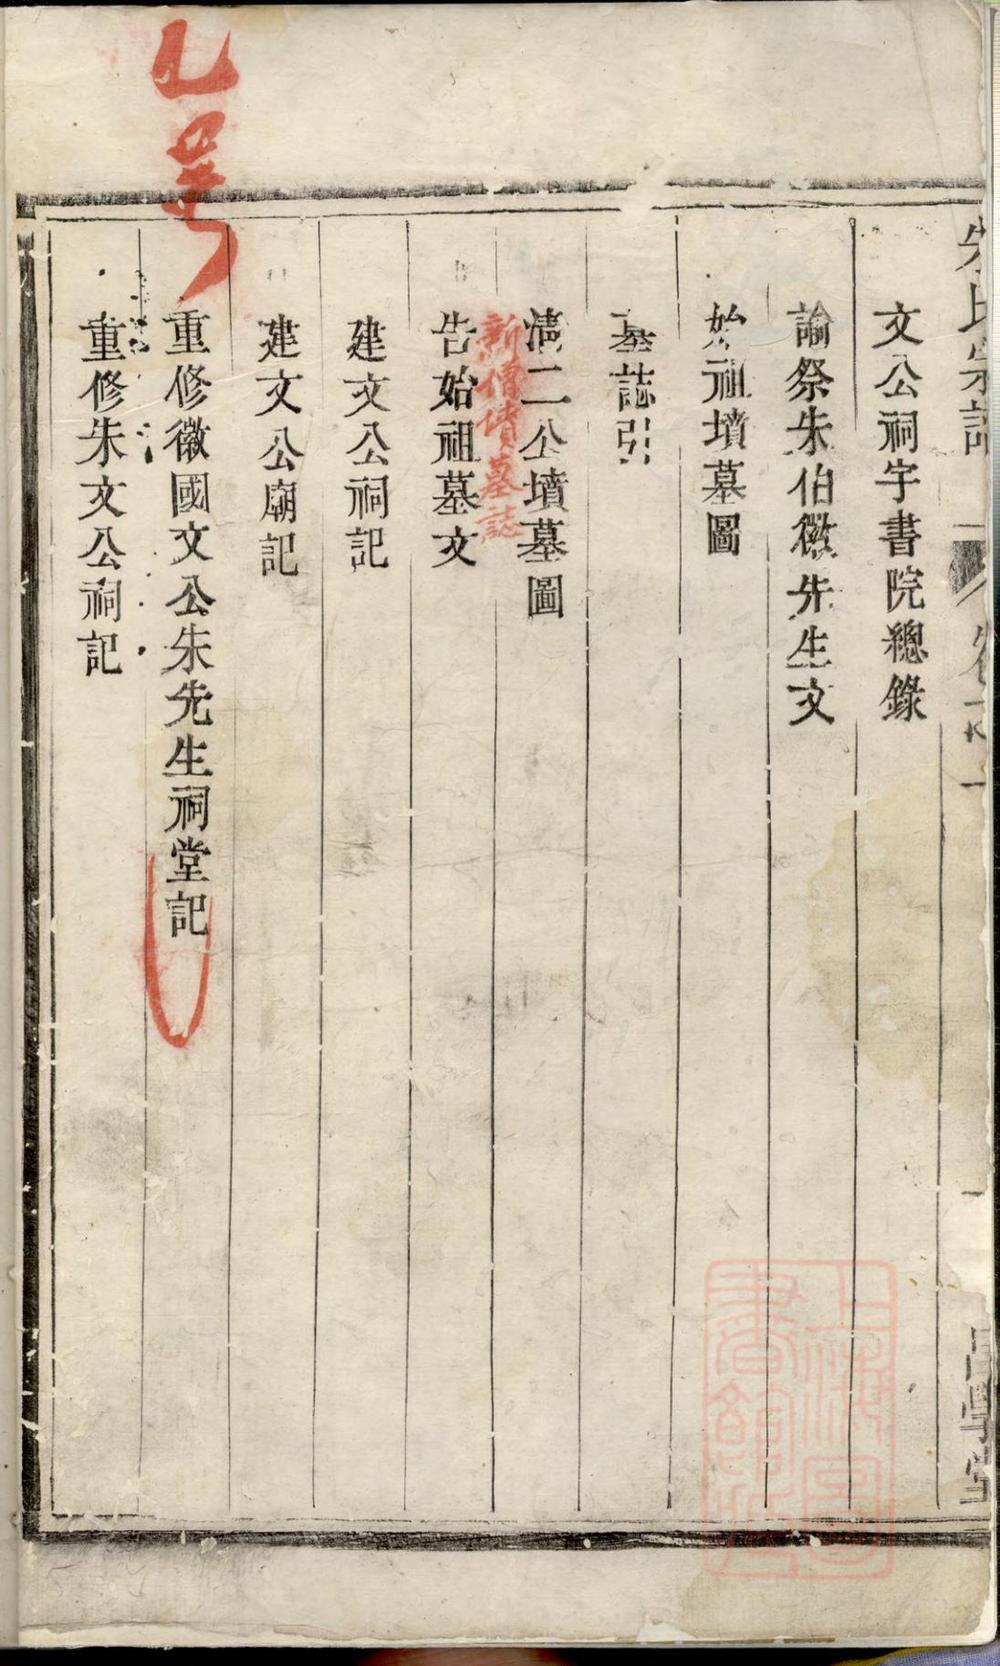 朱氏宗譜
卷首
文公祠宇書院總錄
諭祭朱伯徽先生文
始祖墳墓圖
墓誌引
清二公墳墓圖
新墳墓誌
告始祖墓文
建文公祠記
建文公廟記
重修徽國文公朱先生祠堂記
重修朱文公祠記
上海圖書館藏